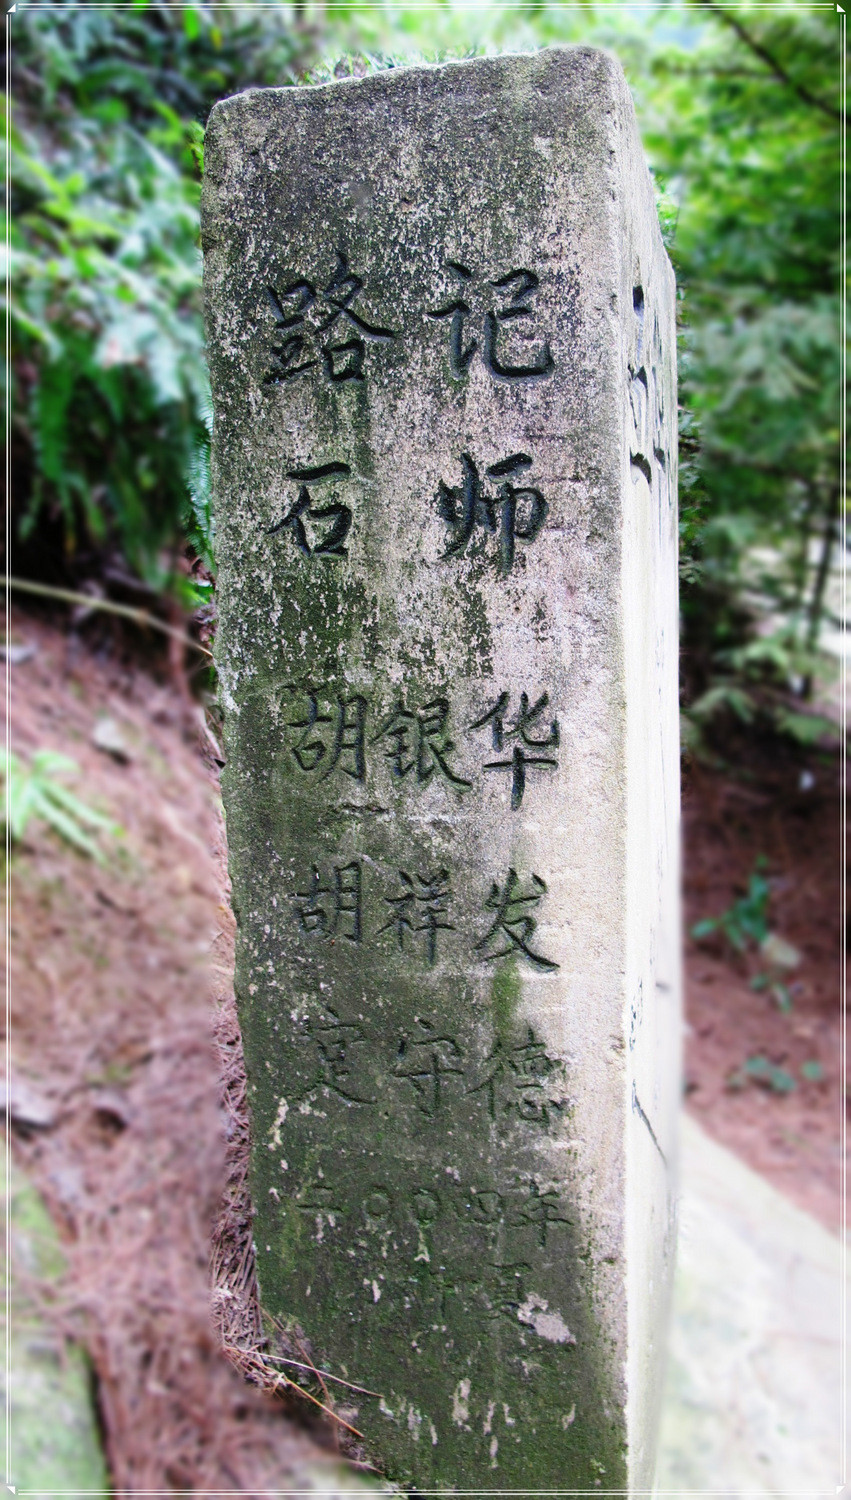 路记
石师
胡银华
胡祥发
守德
二〇〇四年
夏